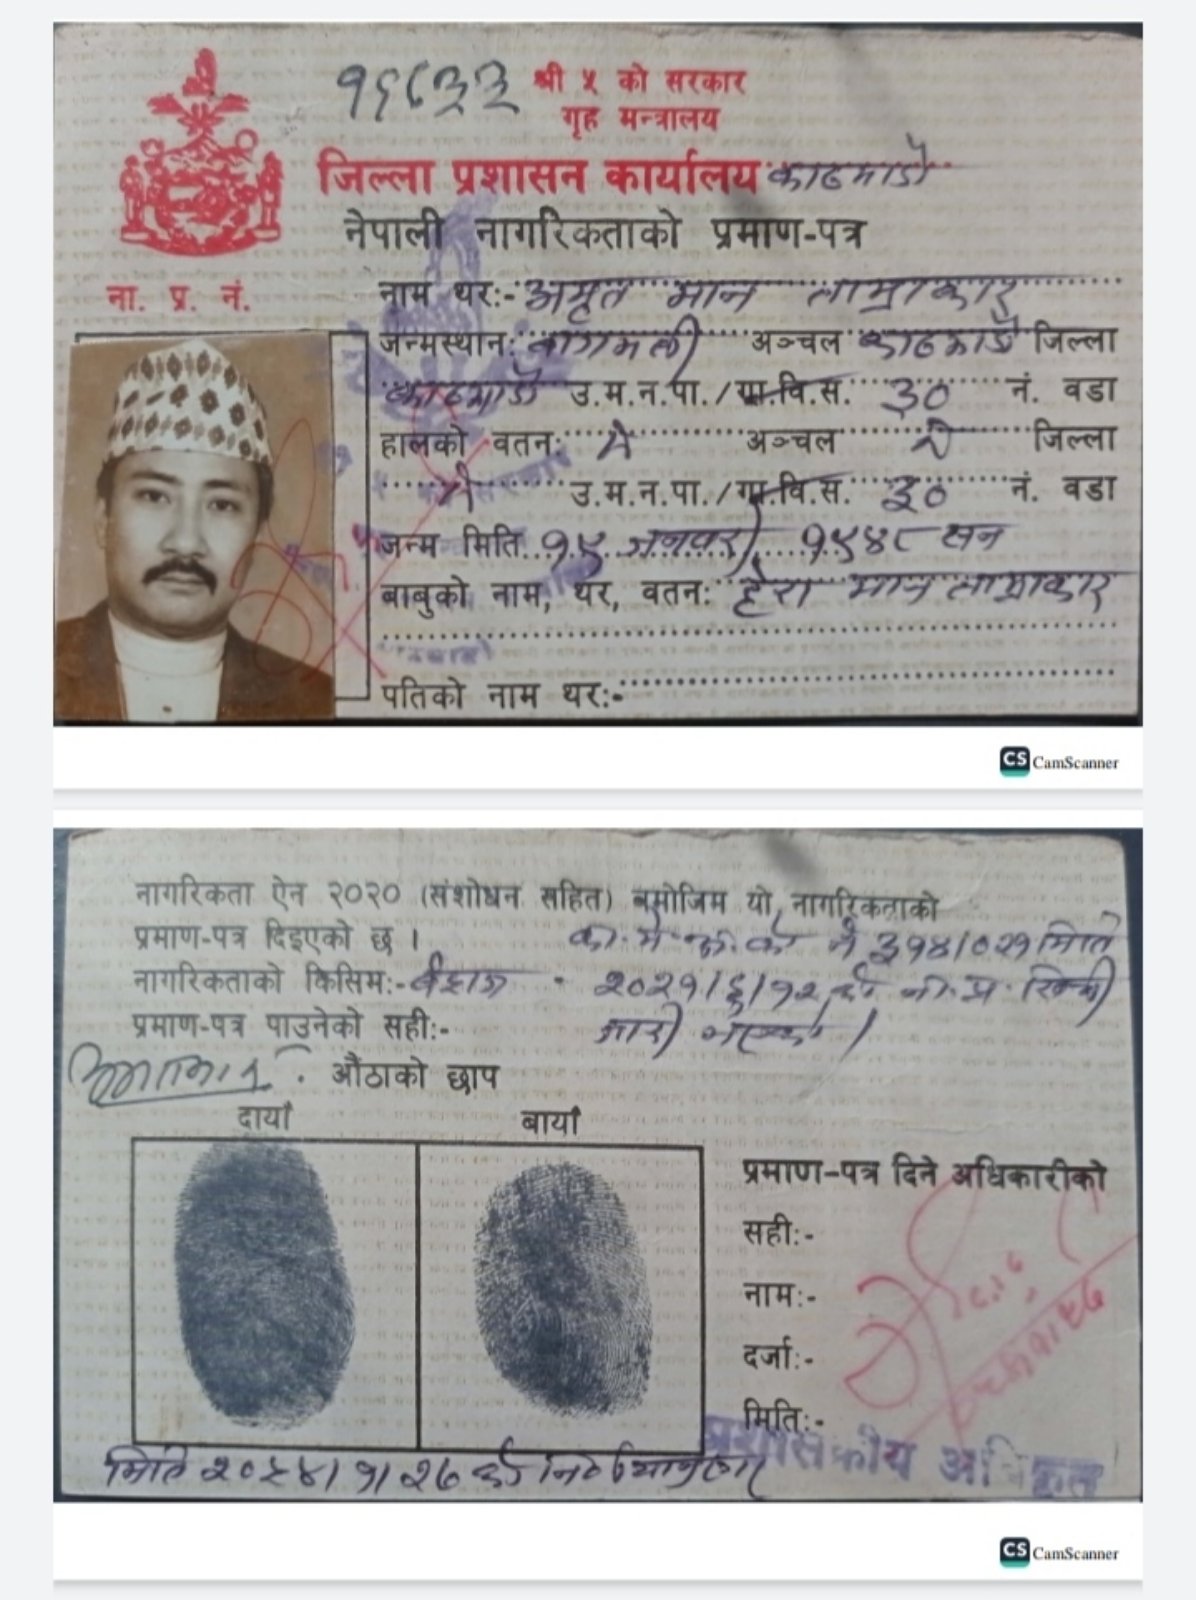 १६८३३ श्री ५ को सरकार
गृह मन्त्रालय
जिल्ला प्रशासन कार्यालय काठमाडौं
नेपाली नागरिकताको प्रमाण-पत्र
ना. प्र. नं.
नाम थर:- अमृत मान ताम्राकार
जन्मस्थान: बागमती अञ्चल काठमाडौं जिल्ला
काठमाडौं उ.म.न.पा./गा.वि.स. ३० नं. वडा
हालको वतन: ऐ अञ्चल ऐ जिल्ला
ऐ उ.म.न.पा./गा.वि.स. ३० नं. वडा
जन्म मिति १९ जनवरी १९४८ सन
बाबुको नाम, थर, वतन: हेरा मान ताम्राकार
पतिको नाम थर:-
CS CamScanner
नागरिकता ऐन २०२० (संशोधन सहित) बमोजिम यो नागरिकताको
प्रमाण-पत्र दिइएको छ । ३१४/०२१ मिति
नागरिकताको किसिम:- वंशज २०२१/६/१२
प्रमाण-पत्र पाउनेको सही:- जारी
औंठाको छाप
दायाँ बायाँ
प्रमाण-पत्र दिने अधिकारीको
सही:-
नाम:-
दर्जा:-
मिति:-
प्रशासकीय अधिकृत
मिति २०५४/१/२७
CS CamScanner